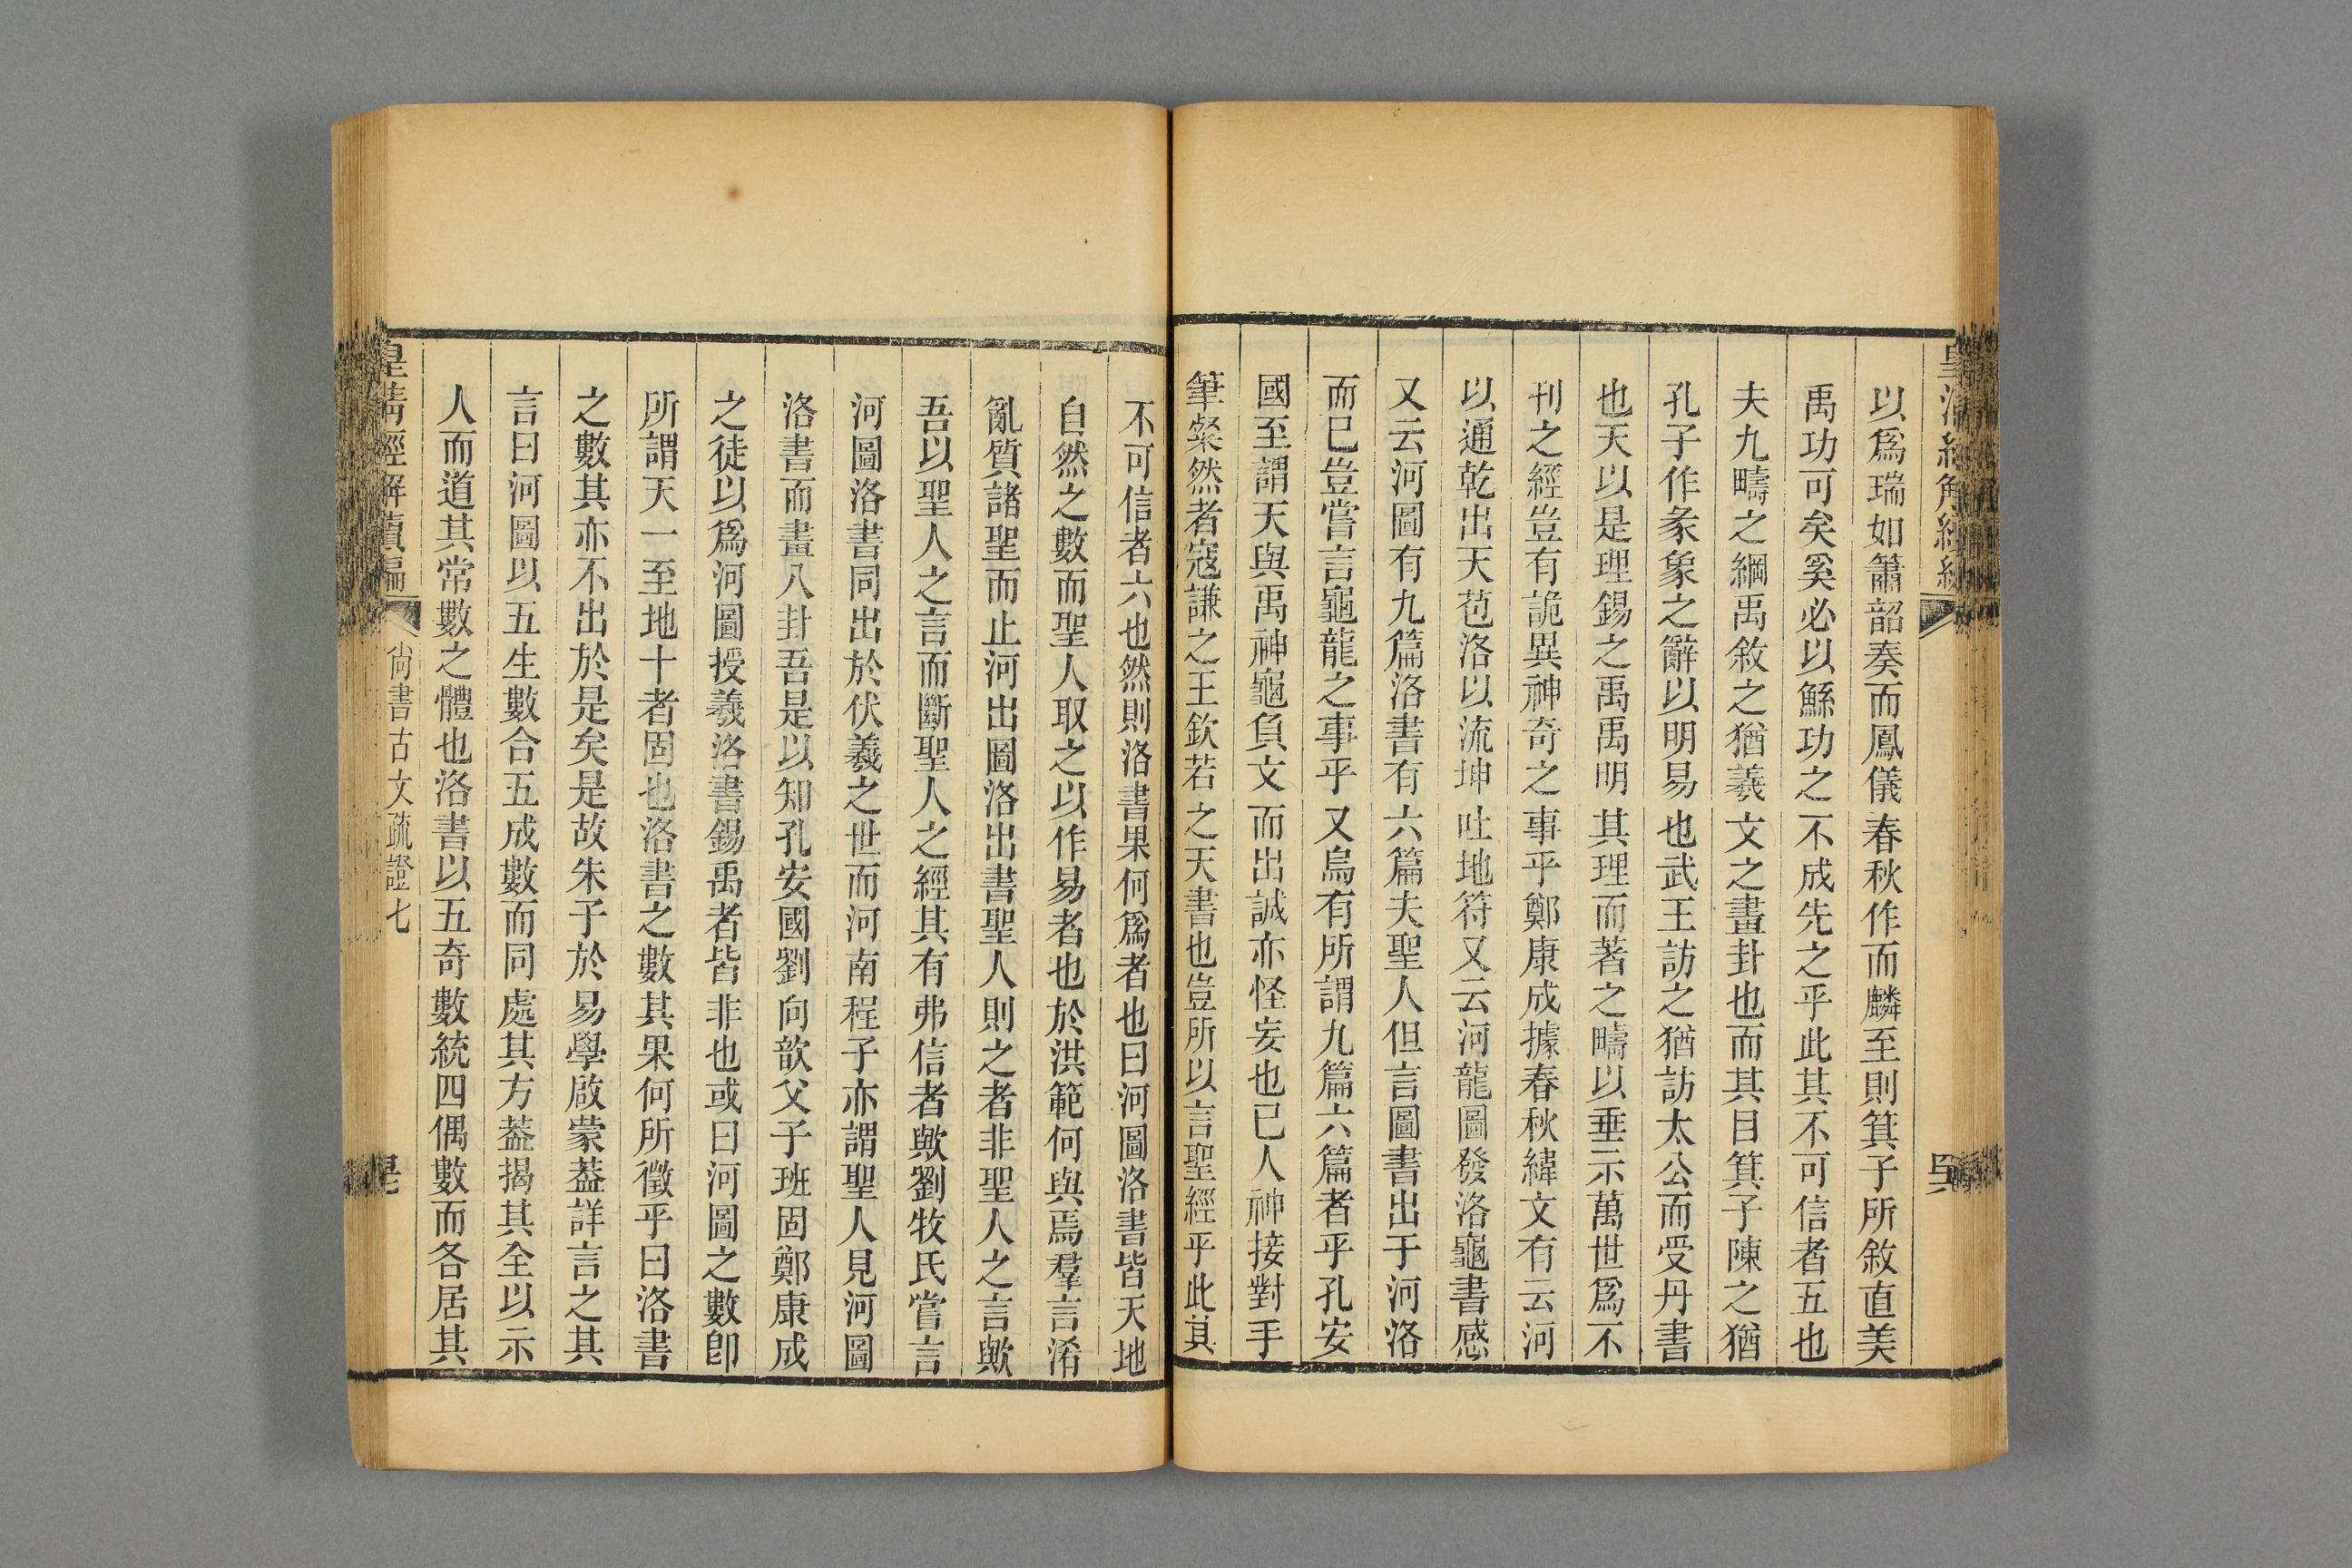 以爲瑞如簫韶奏而鳳儀春秋作而麟至則箕子所敘直美
禹功可矣奚必以鯀功之不成先之乎此其不可信者五也
夫九疇之綱禹敘之猶羲文之畫卦也而其目箕子陳之猶
孔子作彖象之辭以明易也武王訪之猶訪太公而受丹書
也天以是理錫之禹禹明其理而著之疇以垂示萬世爲不
刊之經豈有詭異神奇之事乎鄭康成據春秋緯文有云河
以通乾出天苞洛以流坤吐地符又云河龍圖發洛龜書感
又云河圖有九篇洛書有六篇夫聖人但言圖書出于河洛
而已豈嘗言龜龍之事乎又烏有所謂九篇六篇者乎孔安
國至謂天與禹神龜負文而出誠亦怪妄也已人神接對手
筆粲然者寇謙之王欽若之天書也豈所以言聖經乎此其
不可信者六也然則洛書果何爲者也曰河圖洛書皆天地
自然之數而聖人取之以作易者也於洪範何與焉羣言淆
亂質諸聖而止河出圖洛出書聖人則之者非聖人之言歟
吾以聖人之言而斷聖人之經其有弗信者歟劉牧氏嘗言
河圖洛書同出於伏羲之世而河南程子亦謂聖人見河圖
洛書而畫八卦吾是以知孔安國劉向歆父子班固鄭康成
之徒以爲河圖授羲洛書錫禹者皆非也或曰河圖之數卽
所謂天一至地十者固也洛書之數其果何所徵乎曰洛書
之數其亦不出於是矣是故朱子於易學啟蒙葢詳言之其
言曰河圖以五生數合五成數而同處其方葢揭其全以示
人而道其常數之體也洛書以五奇數統四偶數而各居其
皇清經解續編
尙書古文疏證七